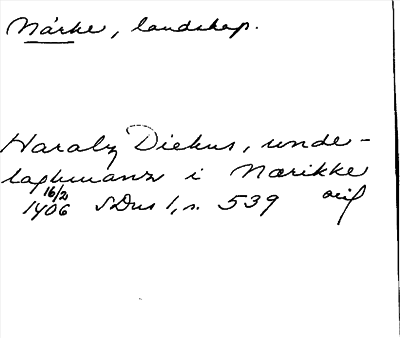 Närke, landskap.
Haralz Diekns, unde-
laghmanz i Nærikke
16/2 1406 SDns 1, s. 539 orig